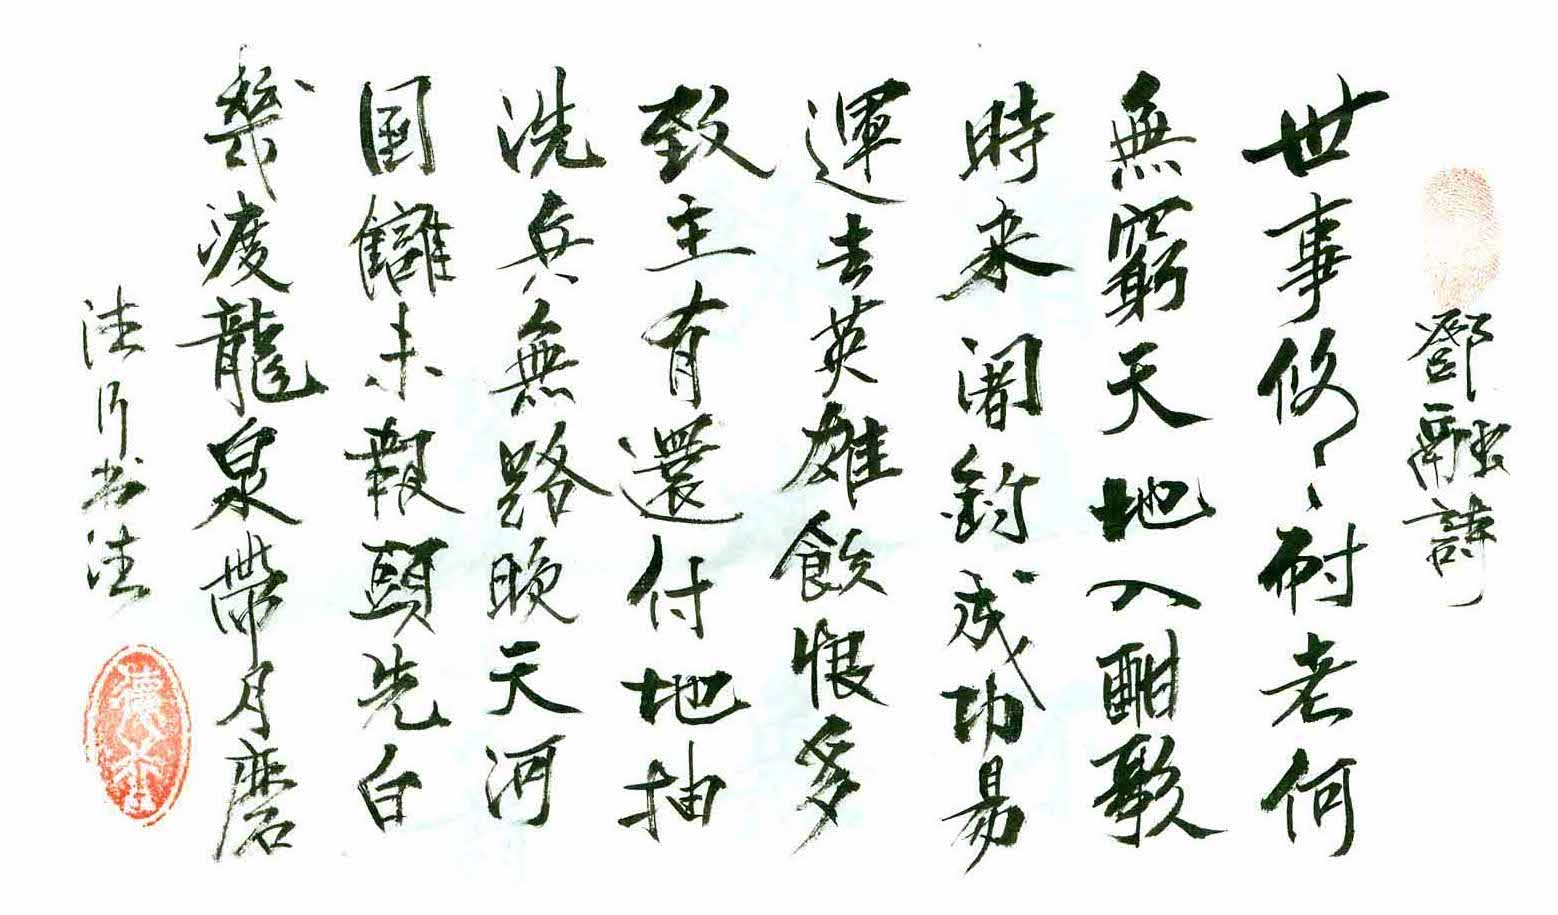 鄧融詩
世事悠々耐老何
無窮天地入酣歌
時来闍釣成功易
運去英雄飲恨多
致主有還付地抽
洗兵無路晚天河
国讎未報頭先白
幾渡龍泉帶月磨
法书法